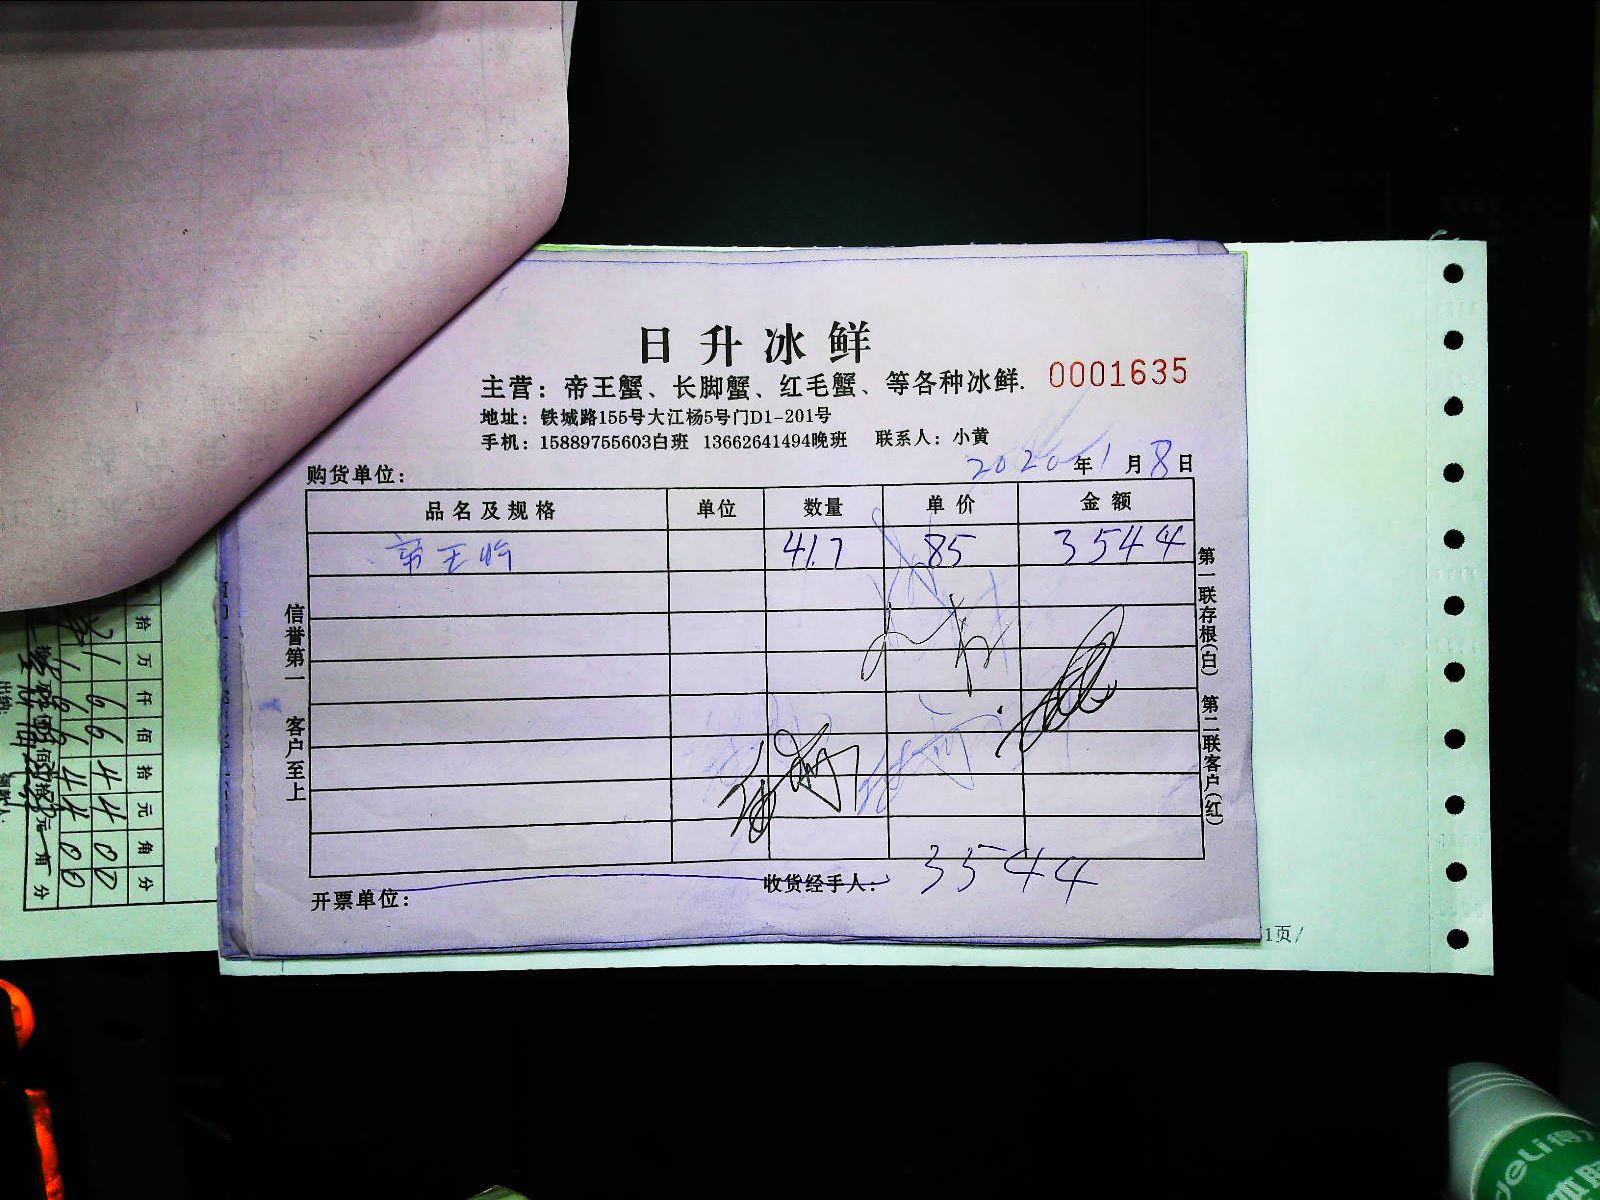 日升冰鲜
主营：帝王蟹、长脚蟹、红毛蟹、等各种冰鲜.
0001635
地址：铁城路155号大江杨5号门D1-201号
手机：15889755603白班 13662641494晚班 联系人：小黄
购货单位：
2020年1月8日
品名及规格 单位 数量 单价 金额
帝王 41.7 85 3544
信誉第一 客户至上
第一联存根(白) 第二联客户(红)
3544
开票单位： 收货经手人：
1页/
拾万仟佰拾元角分
21664400
664400
deli得力